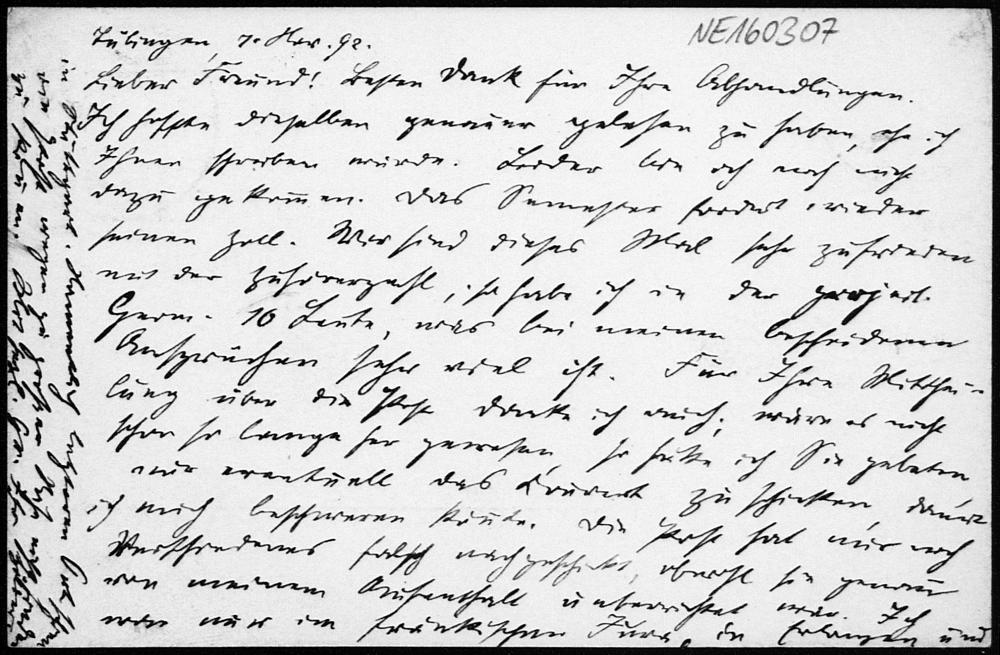 NE160307
Tübingen, 7. Nov. 92.
Lieber Freund! Besten Dank für Ihre Abhandlungen.
Ich hoffte dieselben genauer gelesen zu haben, ehe ich
Ihnen schreiben würde. Leider bin ich noch nicht
dazu gekommen. Das Semester fordert wieder
seinen Zoll. Wir sind dieses Mal sehr zufrieden
mit der Zuhörerzahl, so habe ich in der project.
Geom. 10 Leute, was bei meinen bescheidenen
Ansprüchen sehr viel ist. Für Ihre Mitthei-
lung über die Post danke ich auch; wäre es nicht
schon so lange her gewesen, so hätte ich Sie gebeten,
mir eventuell das Couvert zu schicken, damit
ich mich beschweren könnte. Die Post hat mir noch
Verschiedenes falsch nachgeschickt, obwohl sie genau
von meinem Aufenthalt unterrichtet war. Ich
war nur im fränkischen Jura, in Erlangen und
in